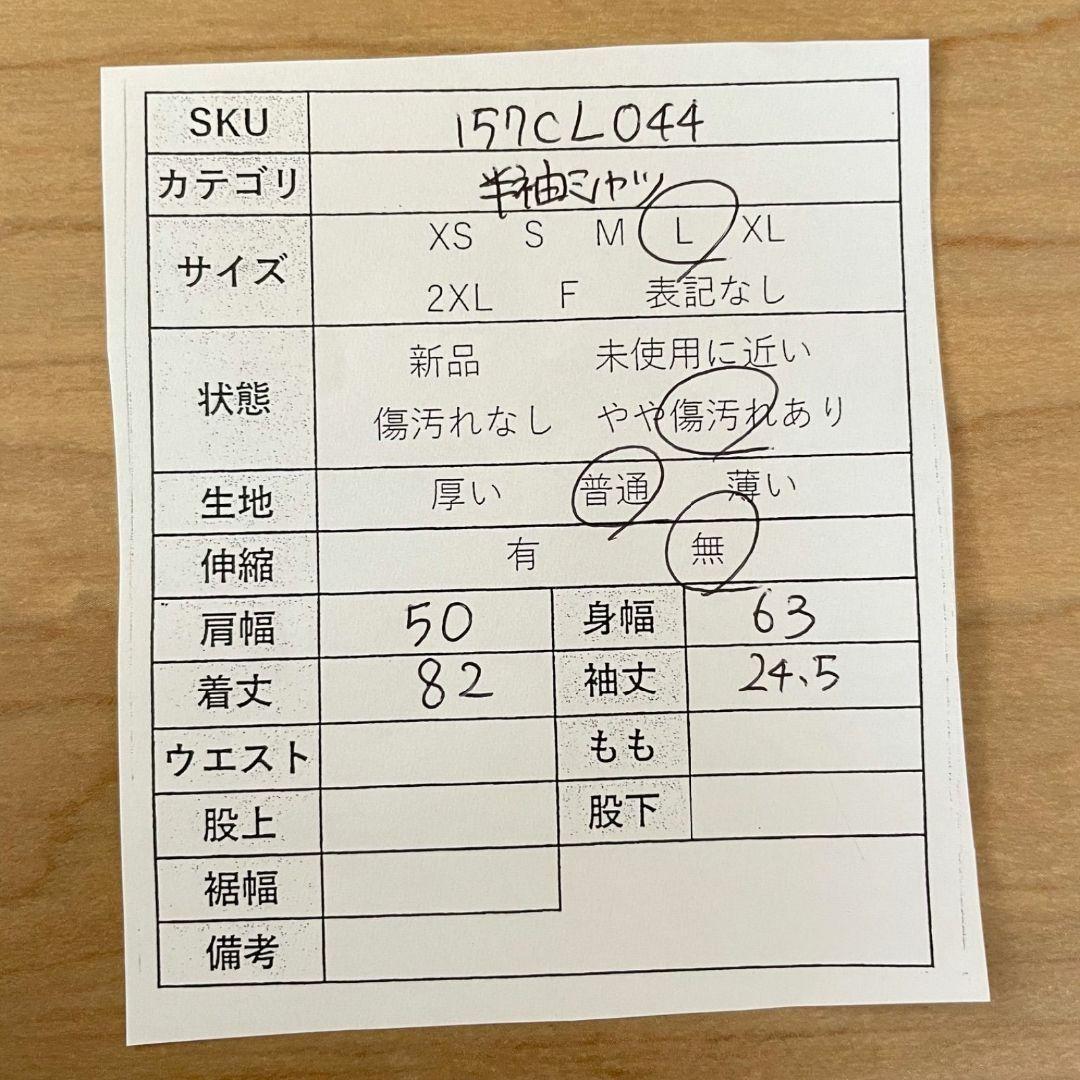 SKU 157CL044
カテゴリ 半袖シャツ
サイズ XS S M L XL
2XL F 表記なし
状態 新品 未使用に近い
傷汚れなし やや傷汚れあり
生地 厚い 普通 薄い
伸縮 有 無
肩幅 50 身幅 63
着丈 82 袖丈 24.5
ウエスト もも
股上 股下
裾幅
備考